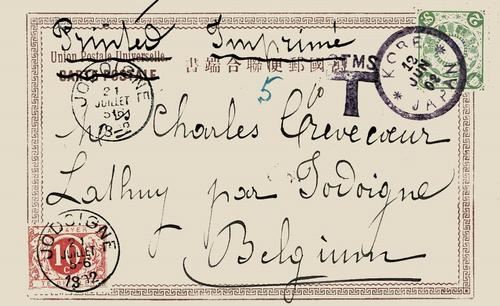 Printed Imprimé
Union Postale Universelle.
CARTE POSTALE
書端合聯便郵國
KOBE
12
JUN
02
JAPAN
TMS
T
JODOIGNE
21
JUILLET
5
Mr Charles Crèvecœur
Lathuy par Jodoigne
Belgium
JODOIGNE
21
JUILLET
10
A PAYER
2